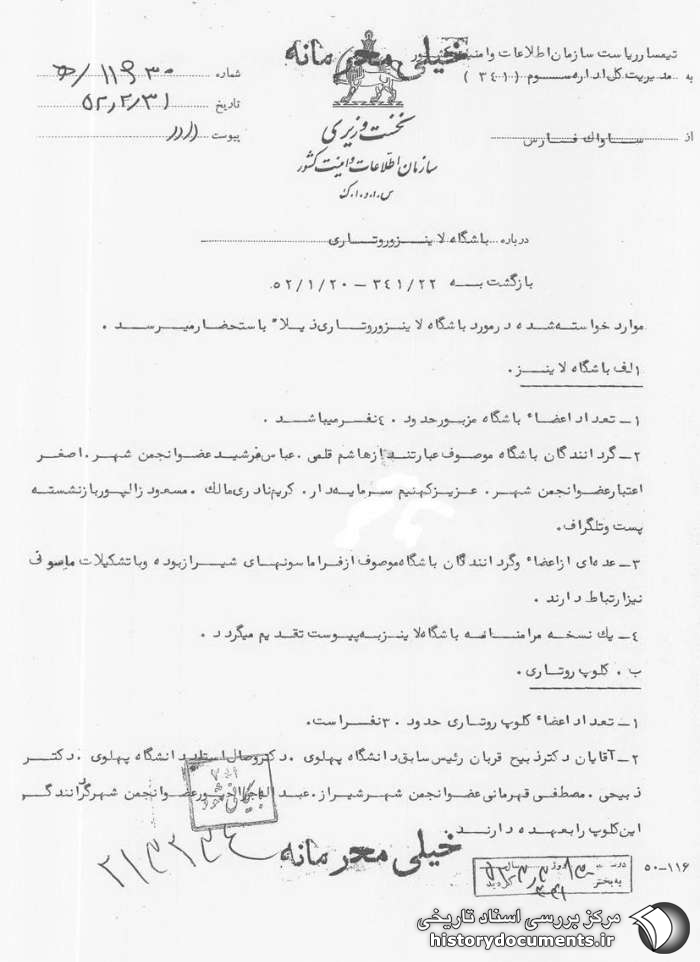 تیمسار ریاست سازمان اطلاعات و امنیت کشور
به مدیریت کل اداره سوم (۳۴۱)
از ساواک فارس
خیلی محرمانه
نخست وزیری
سازمان اطلاعات و امنیت کشور
س.ا.و.ا.ک
شماره ۱۱۹۳۰/ه
تاریخ ۵۲/۲/۳۱
پیوست دارد
درباره باشگاه لاینز و روتاری
بازگشت به ۳۴۱/۲۲ – ۵۲/۱/۲۰
موارد خواسته شده در مورد باشگاه لاینز و روتاری ذیلاً باستحضار میرسد .
الف باشگاه لاینز .
۱ــ تعداد اعضاء باشگاه مزبور حدود ۴۰ نفر میباشد .
۲ــ گردانندگان باشگاه موصوف عبارتند از هاشم قلمی . عباس فرشید عضو انجمن شهر . اصغر
اعتبار عضو انجمن شهر . عزیز کهنیم سرمایه دار . کریم نادری مالک . مسعود زالپور بازنشسته
پست و تلگراف.
۳ــ عده ای از اعضاء و گردانندگان باشگاه موصوف از فراماسونهای شیراز بوده و با تشکیلات ماسونی
نیز ارتباط دارند .
۴ــ یک نسخه مرامنامه باشگاه لاینز به پیوست تقدیم میگردد .
ب . کلوپ روتاری .
۱ــ تعداد اعضاء کلوپ روتاری حدود ۳۰ نفر است.
۲ــ آقایان دکتر ذبیح قربان رئیس سابق دانشگاه پهلوی . دکتر وصال استاد دانشگاه پهلوی . دکتر
ذبیحی . مصطفی قهرمانی عضو انجمن شهر شیراز . عبد عضو انجمن شهر گرانندگر
این کلوپ را بعهده دارند
بایگانی شود
خیلی محرمانه
۵۰-۱۱۶
مرکز بررسی اسناد تاریخی
historydocuments.ir